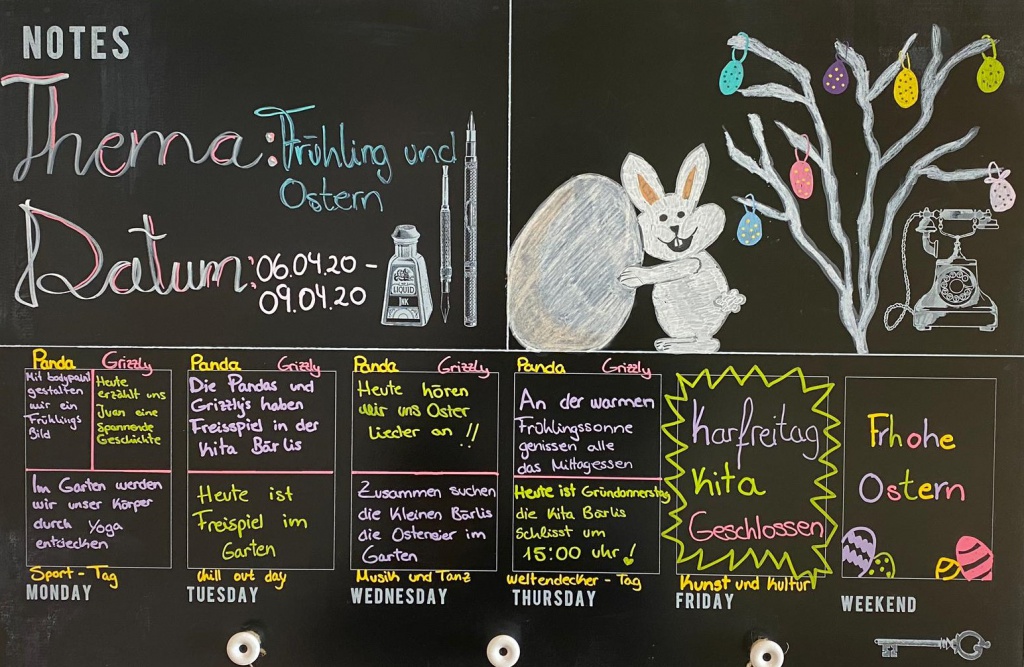 NOTES
Thema: Frühling und
Ostern
Datum: 06.04.20 -
09.04.20
LIQUID
INK
Panda Grizzly
Mit bodypaint
gestalten
wir ein
Frühlings
Bild
Heute
erzählt uns
Juan eine
Spannende
Geschichte
Im Garten werden
wir unser Körper
durch Yoga
entdecken
Sport - Tag
MONDAY
Panda Grizzly
Die Pandas und
Grizzly's haben
Freisspiel in der
Kita Bär lis
Heute ist
Freispiel im
Garten
chill out day
TUESDAY
Panda Grizzly
Heute hören
wir uns Oster
Liecder an !!
Zusammen suchen
die Kleinen Bärlis
die Ostereier im
Garten
Musik und Tanz
WEDNESDAY
Panda Grizzly
An der warmen
Frühlingssonne
genissen alle
das Mittagessen
Heute ist Gründonnerstag
die Kita Bärlis
Schlisst um
15:00 uhr!
weltendecker - Tag
THURSDAY
Karfreitag
Kita
Geschlossen
Kunst und Kultur
FRIDAY
Frhohe
Ostern
WEEKEND